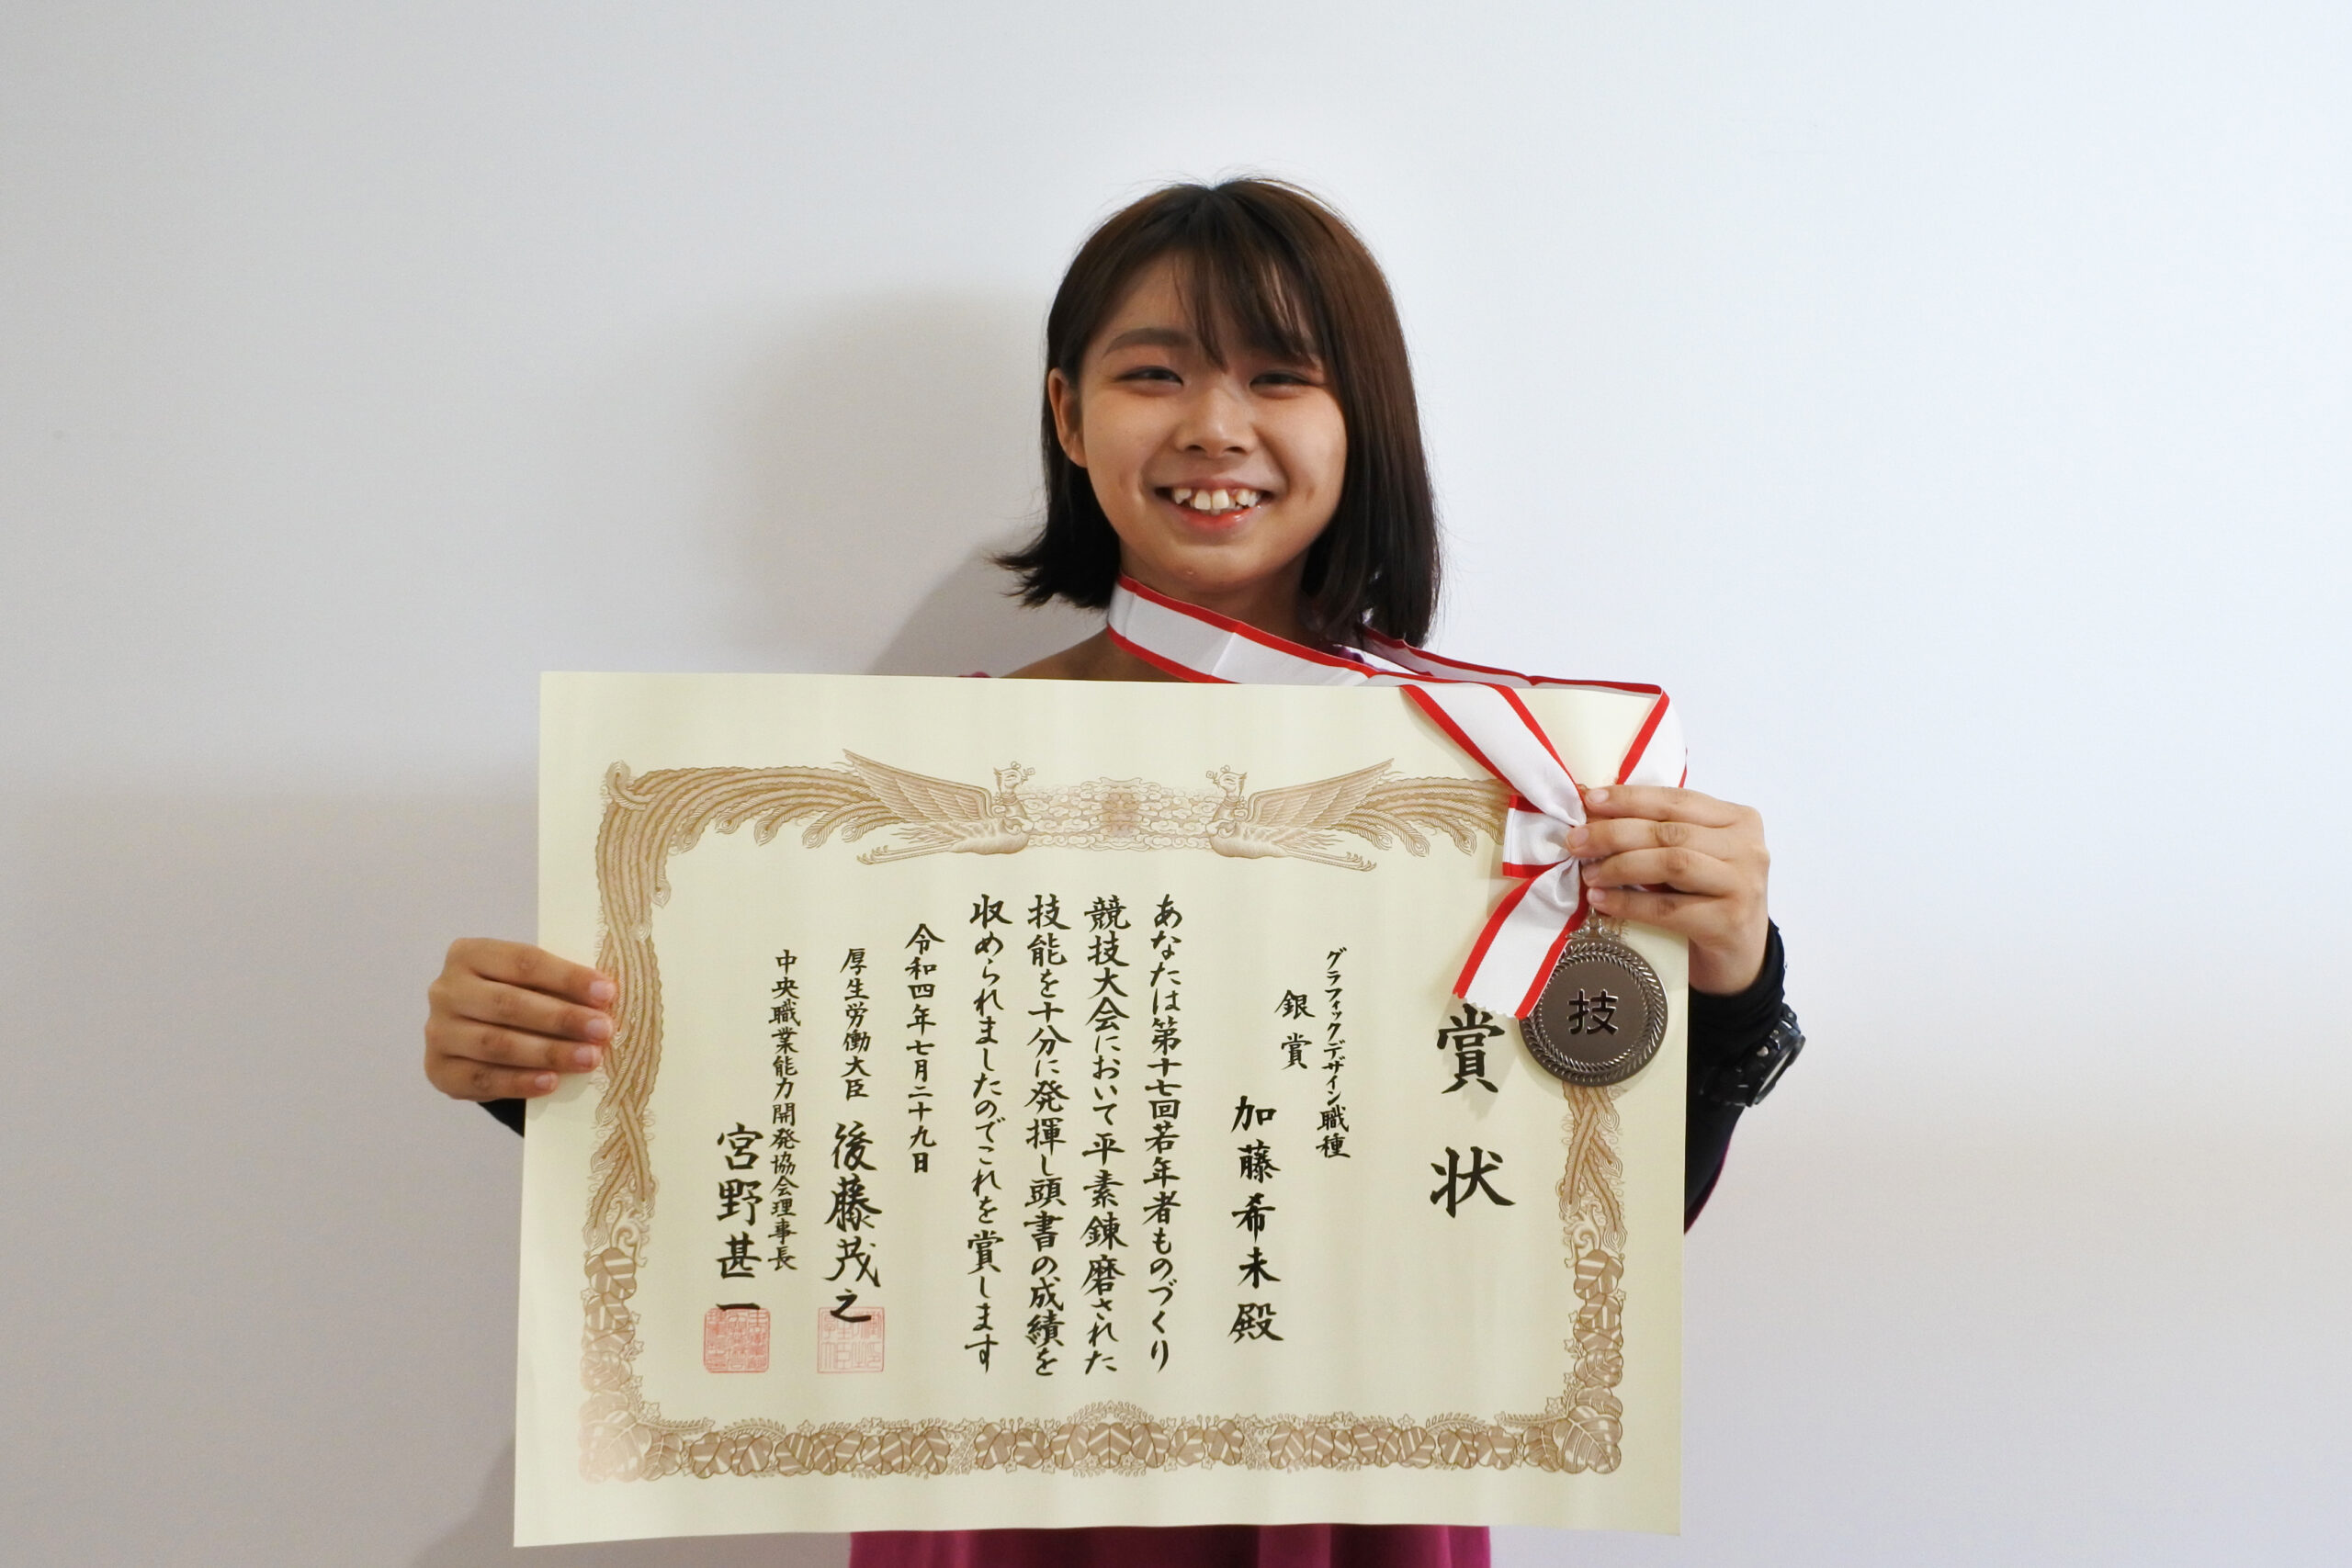 賞状
グラフィックデザイン職種
銀賞
加藤希未殿
あなたは第十七回若年者ものづくり
競技大会において平素錬磨された
技能を十分に発揮し頭書の成績を
収められましたのでこれを賞します
令和四年七月二十九日
厚生労働大臣 後藤茂之
中央職業能力開発協会理事長
宮野甚一
技